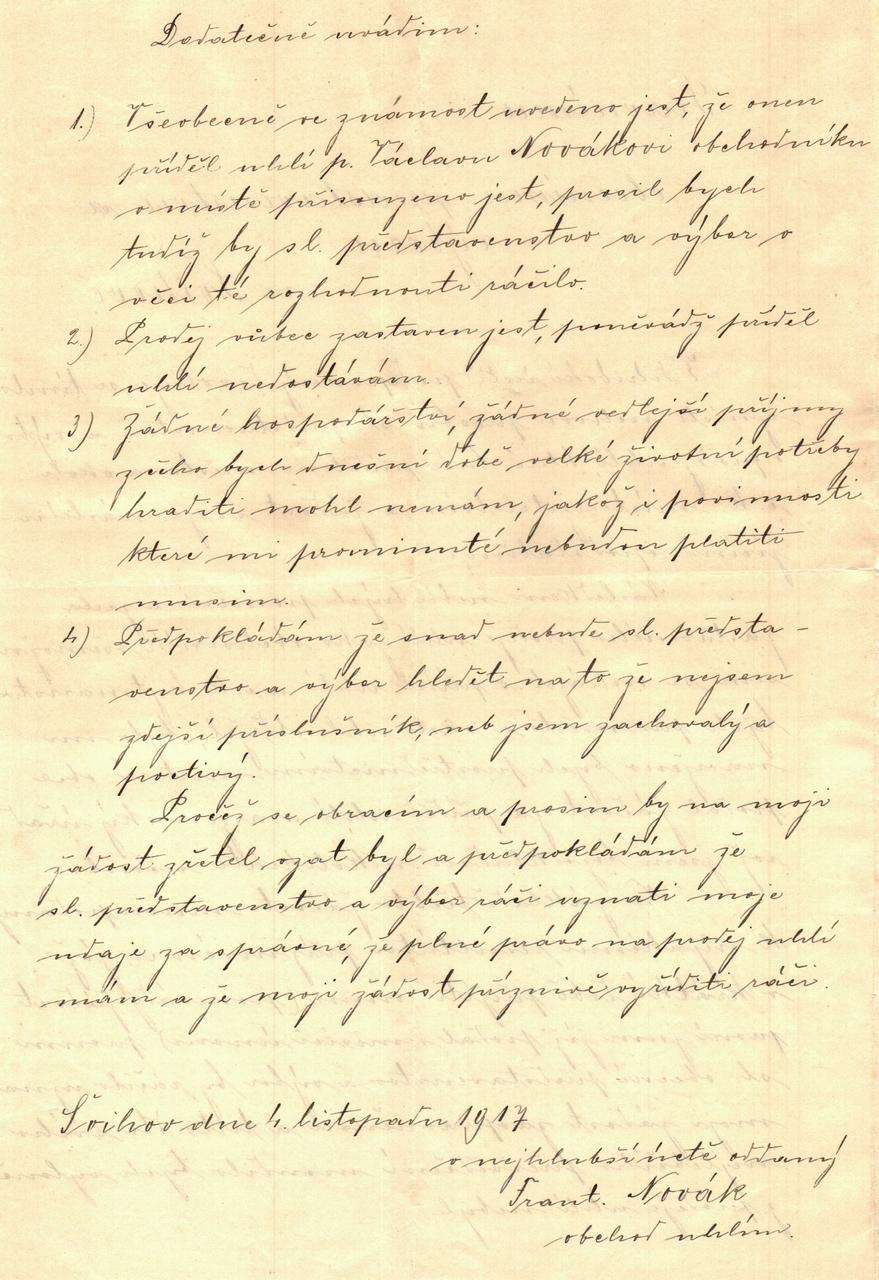 Dodatečně uvádim:
1.) Všeobecně ve známost uvedeno jest, že onen
příděl uhlí p. Václavu Novákovi obchodníku
v místě přisouzeno jest, prosil bych
tudíž by sl. představenstvo a výbor v
věci té rozhodnouti ráčilo.
2.) Prodej vůbec zastaven jest, poněvádž příděl
uhlí nedostávám.
3) Žádné hospodářství, žádné vedlejší příjmy
z čeho bych dnešní době velké životní potřeby
hraditi mohl nemám, jakož i povinnosti
které mi prominuté nebudou platiti
musim.
4) Předpokládám že snad nebude sl. předsta-
venstvo a výbor hledět na to že nejsem
zdejší příslušník, neb jsem zachovalý a
poctivý.
Pročež se obracím a prosim by na moji
žádost zřetel vzat byl a předpokládám že
sl. představenstvo a výbor ráči uznati moje
udaje za správné, že plné právo na prodej uhlí
mám a že moji žádost příznivě vyříditi ráči.
Švihov dne 4. listopadu 1917
v nejhlubší úctě oddaný
Frant. Novák
obchod uhlím.